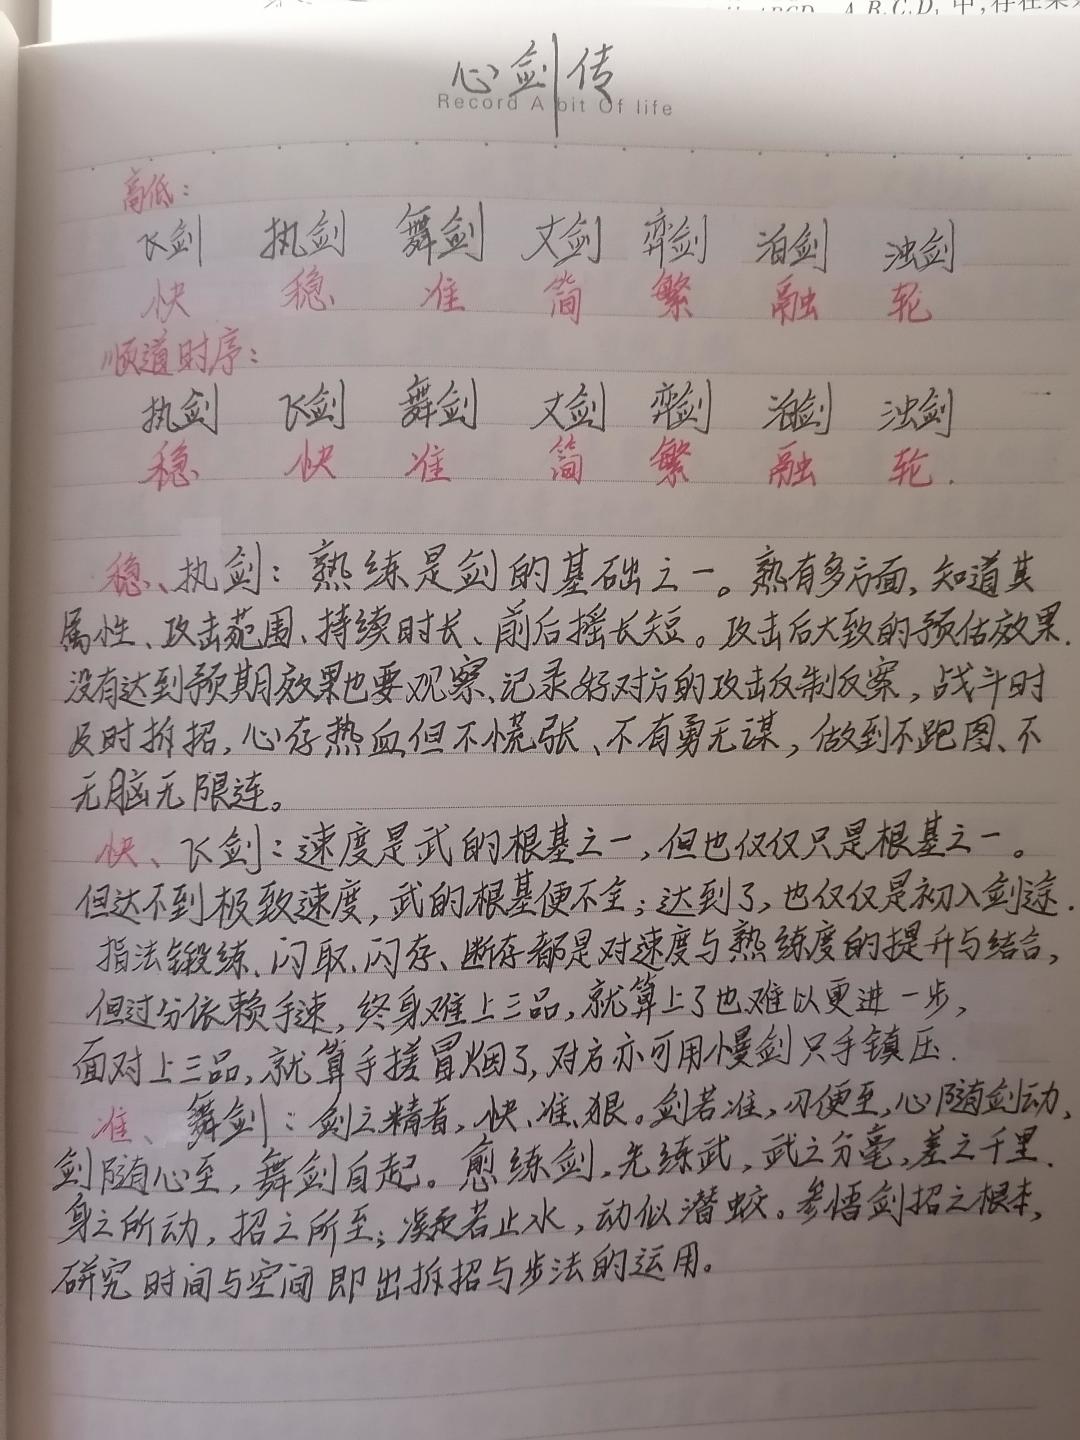 心剑传
Record A bit Of life
高低：
飞剑 执剑 舞剑 丈剑 弈剑 泊剑 浊剑
快 稳 准 简 繁 融 轮
顺道时序：
执剑 飞剑 舞剑 丈剑 弈剑 泊剑 浊剑
稳 快 准 简 繁 融 轮.
稳、执剑：熟练是剑的基础之一。熟有多方面，知道其
属性、攻击范围、持续时长、前后摇长短。攻击后大致的预估效果.
没有达到预期效果也要观察、记录好对方的攻击反制反案，战斗时
及时拆招，心存热血但不慌张、不有勇无谋，做到不跑图、不
无脑无限连。
快、飞剑：速度是武的根基之一，但也仅仅只是根基之一。
但达不到极致速度，武的根基便不全；达到了，也仅仅是初入剑途.
指法锻练、闪取、闪存、断存都是对速度与熟练度的提升与结合，
但过分依赖手速，终身难上三品，就算上了也难以更进一步，
面对上三品，就算手搓冒烟了，对方亦可用慢剑只手镇压.
准、舞剑：剑之精者，快、准、狠。剑若准，刃便至，心随剑动，
剑随心至，舞剑自起。愈练剑，先练武，武之分毫，差之千里.
身之所动，招之所至；凝若止水，动似潜蛟。参悟剑招之根本，
研究时间与空间即出拆招与步法的运用。